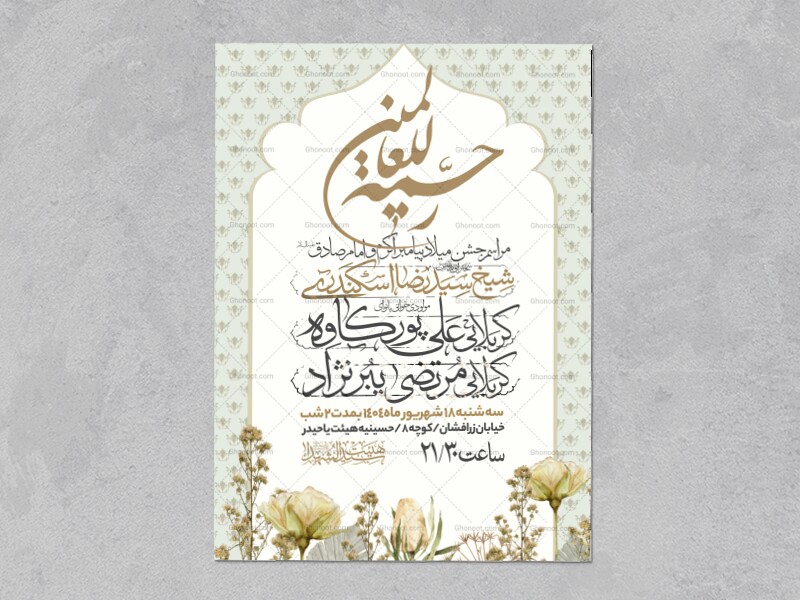 رحمة للعالمین
مراسم جشن میلاد پیامبر اکرم و امام صادق
شیخ سیدرضا اسکندری
مولودی خوانی بانوای
کربلایی علی پورکاوه
کربلایی مرتضی ببرنژاد
سه شنبه ۱۸ شهریور ماه ۱۴۰۴ بمدت ۲ شب
خیابان زرافشان/کوچه ۸/حسینیه هیئت یا حیدر
ساعت ۲۱/۳۰
هیئت سیدالشهدا
Ghonoot.com